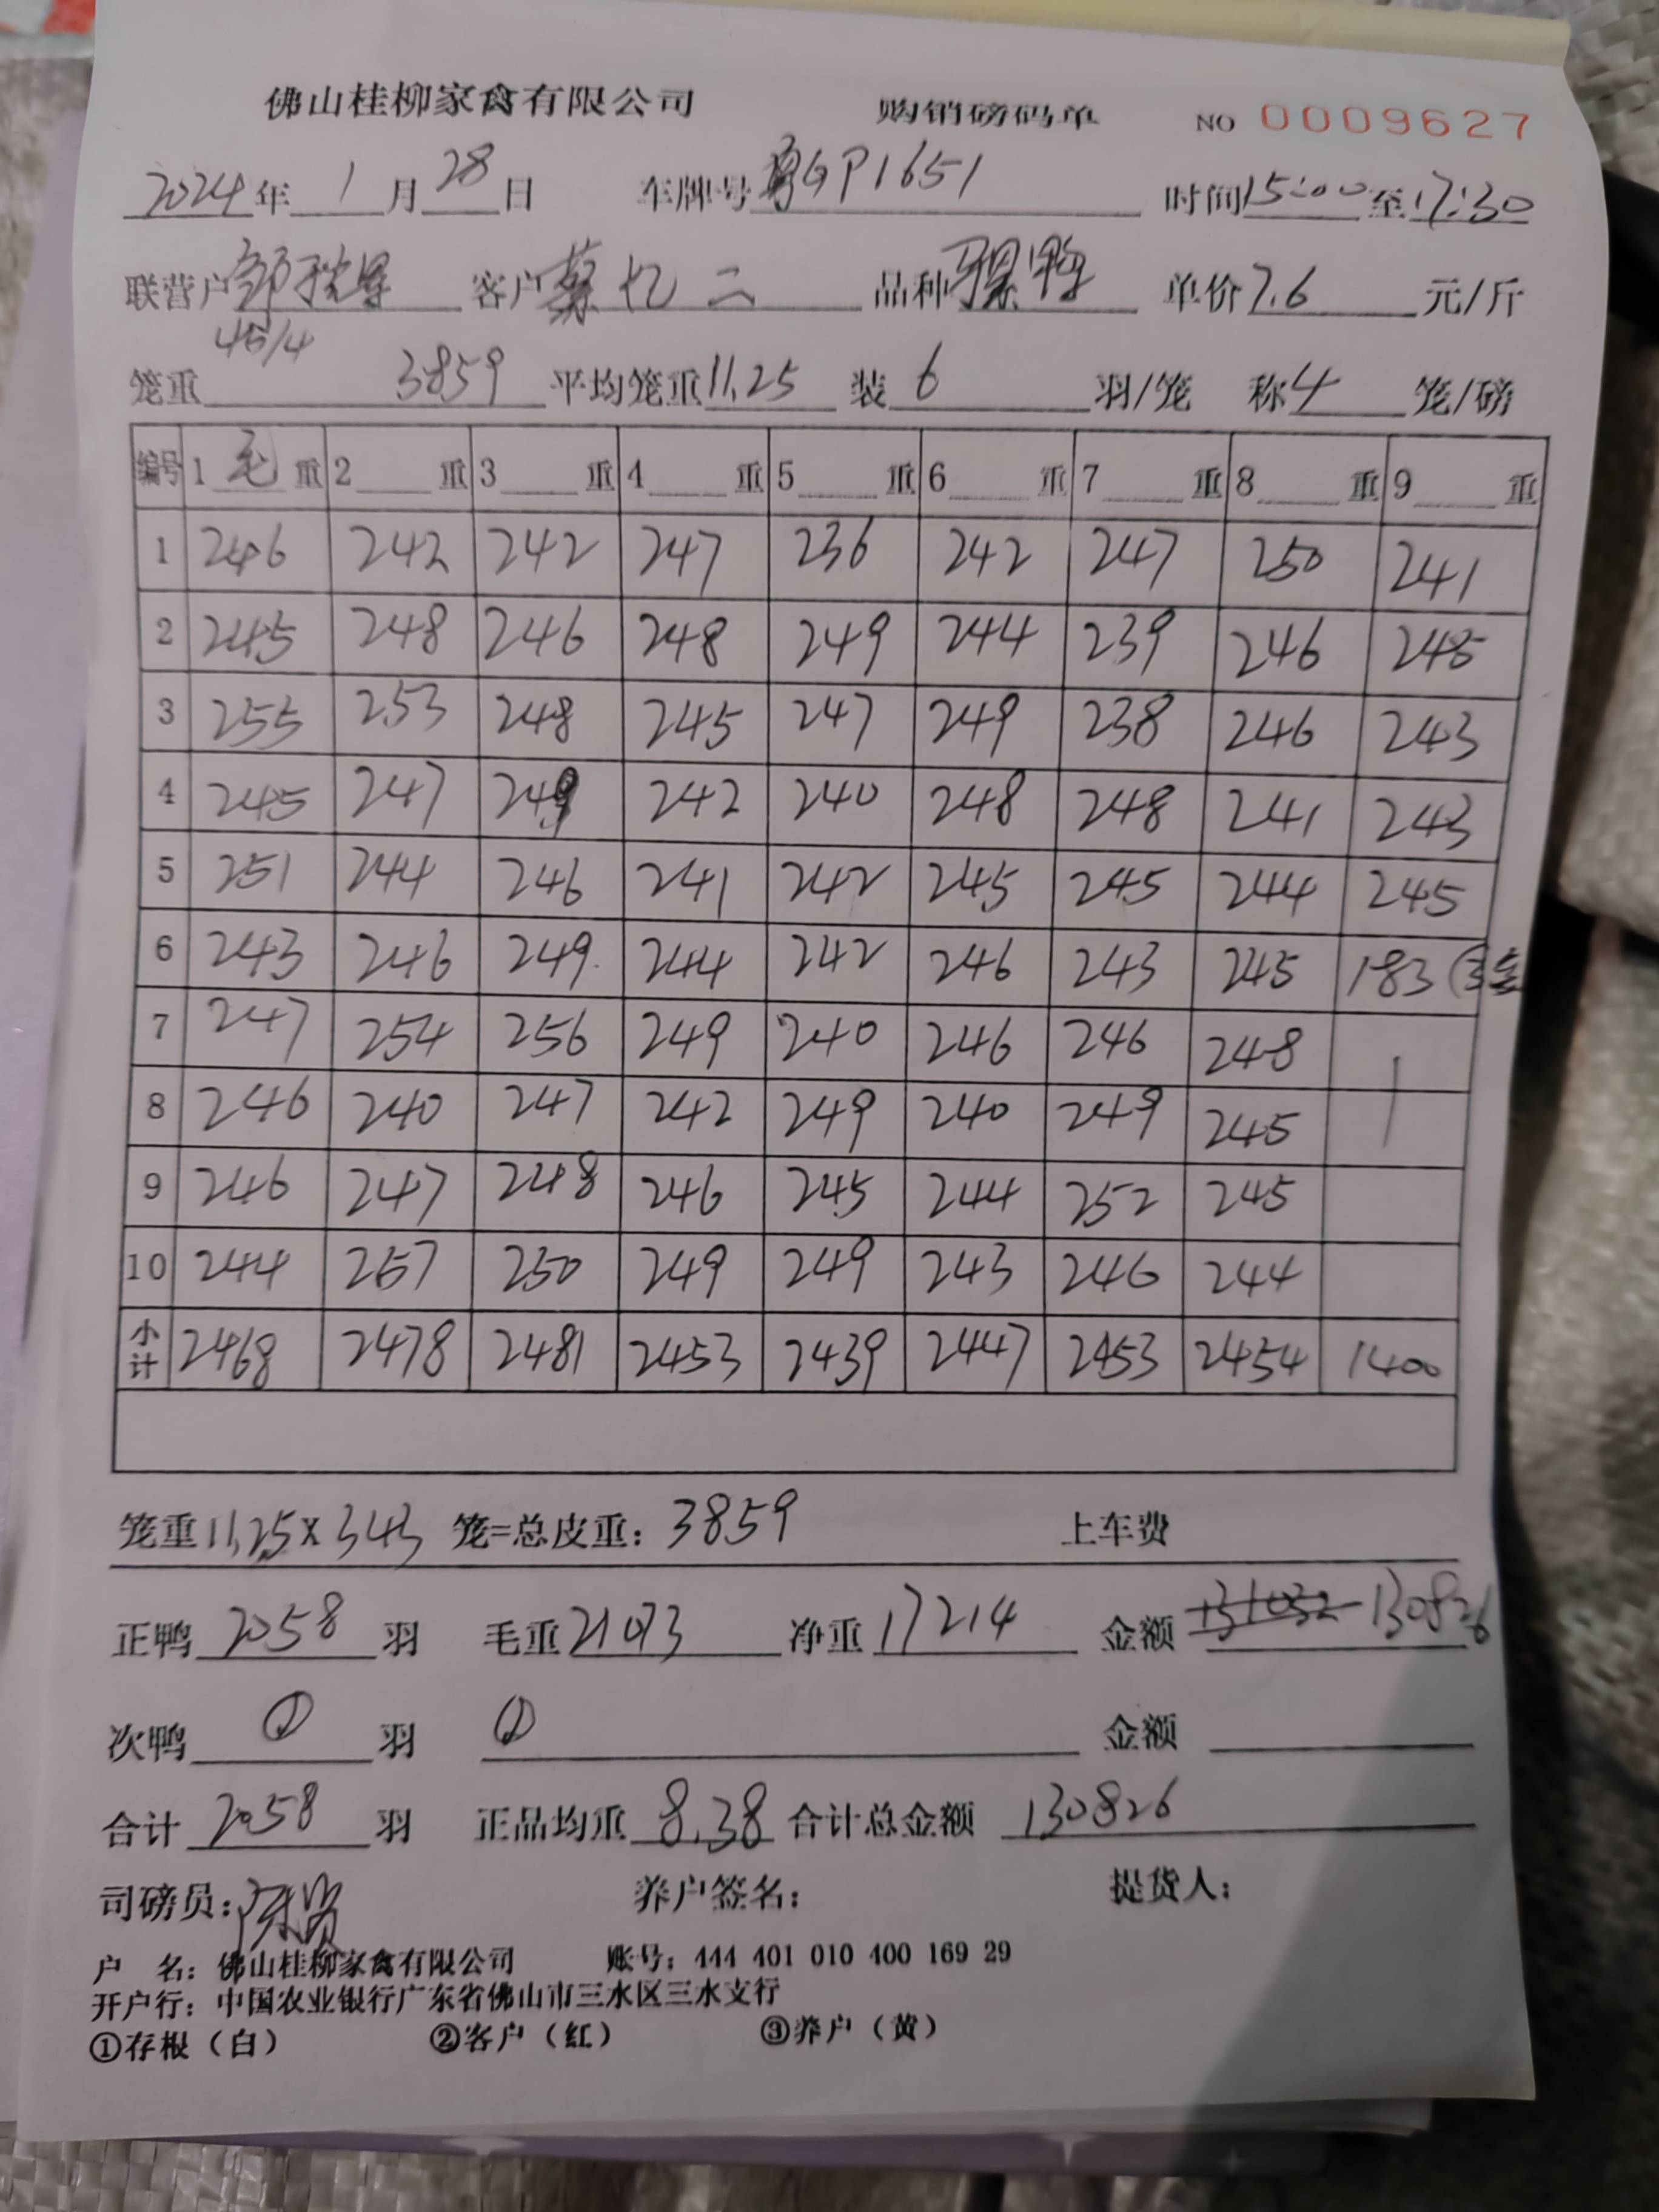 佛山桂柳家禽有限公司 购销磅码单 NO 0009627
2024年 1月 28日 车牌号 粤GP1651 时间 15:00 至 17:30
联营户 客户 蔡忆二 品种 骡鸭 单价 7.6 元/斤
45/4
笼重 3859 平均笼重 11.25 装 6 羽/笼 称 4 笼/磅
编号 1 毛 重 2 重 3 重 4 重 5 重 6 重 7 重 8 重 9 重
1 246 242 242 247 236 242 247 250 241
2 245 248 246 248 249 244 239 246 245
3 255 253 248 245 247 249 238 246 243
4 245 247 249 242 240 248 248 241 243
5 251 244 246 241 242 245 245 244 245
6 243 246 249 244 242 246 243 245 183 (3笼
7 247 254 256 249 240 246 246 248
8 246 240 247 242 249 240 249 245
9 246 247 248 246 245 244 252 245
10 244 257 250 249 249 243 246 244
小计 2468 2478 2481 2453 2439 2447 2453 2454 1400
笼重 11.25 X 343 笼=总皮重: 3859 上车费
正鸭 2058 羽 毛重 21073 净重 17214 金额 131032 130826
次鸭 羽 金额
合计 2058 羽 正品均重 8.38 合计总金额 130826
司磅员: 养户签名: 提货人:
户 名: 佛山桂柳家禽有限公司 账号: 444 401 010 400 169 29
开户行: 中国农业银行广东省佛山市三水区三水支行
①存根(白) ②客户(红) ③养户(黄)